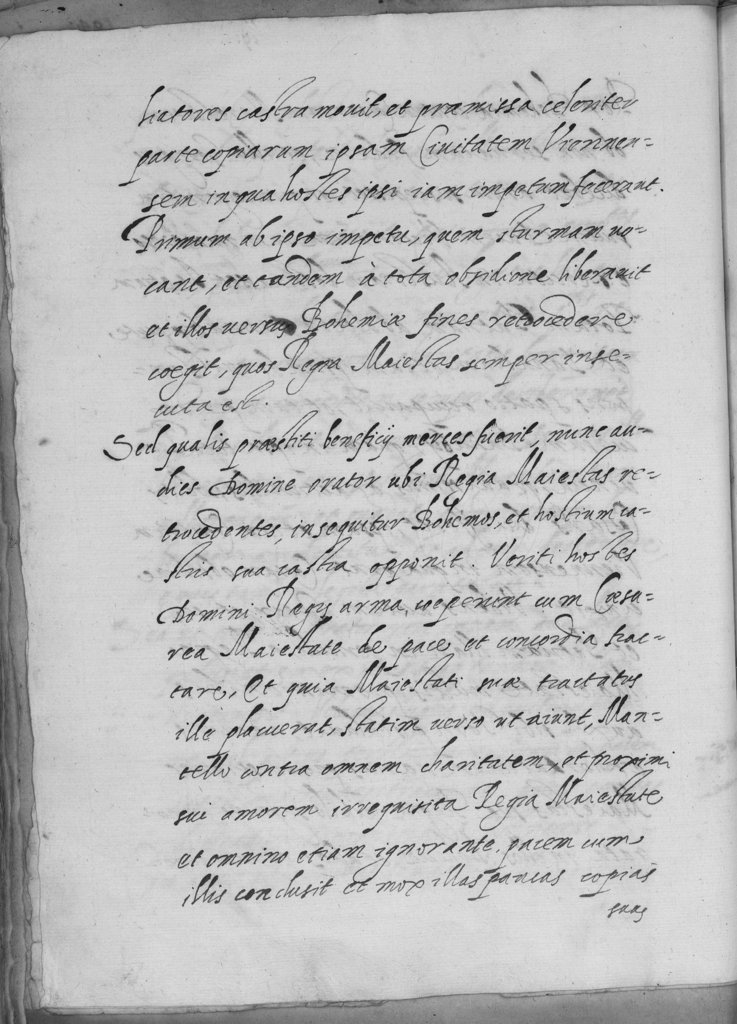 liatores castra mouit, et praemissa celeriter
parte copiarum ipsam Ciuitatem Viennen=
sem in qua hostes ipsi iam impetum fecerant.
Primum ab ipso impetu, quem sturmam uo=
cant, et tandem à tota obsidione liberauit
et illos uersus Bohemiæ fines retrocedere
coegit, quos Regia Maiestas semper inse=
cuta est.
Sed qualis præstiti beneficij merces fuerit, nunc au=
dies Domine orator ubi Regia Maiestas re=
trocedentes, insequitur Bohemos, et hostium ca=
stris sua castra opponit. Veriti hostes
Domini Regis arma, coeperunt cum Cæsa=
rea Maiestate de pace et concordia trac=
tare, Et quia Maiestati suæ tractatus
ille placuerat, statim uerso ut aiunt, Man=
tello contra omnem charitatem, et proximi
sui amorem irrequisita Regia Maiestate
et omnino etiam ignorante, pacem cum
illis conclusit et mox illas paucas copias
suas